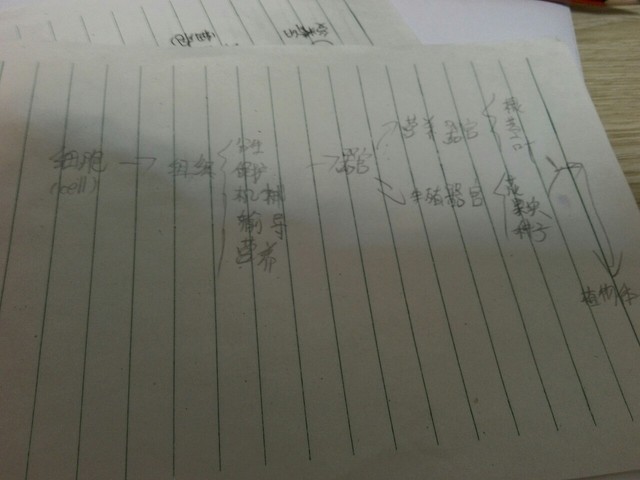 细胞 → 组织 { 分生 保护 机械 输导 营养 → 器官
(cell)
营养器官 { 根 茎 叶
生殖器官 { 花 果实 种子
植物体